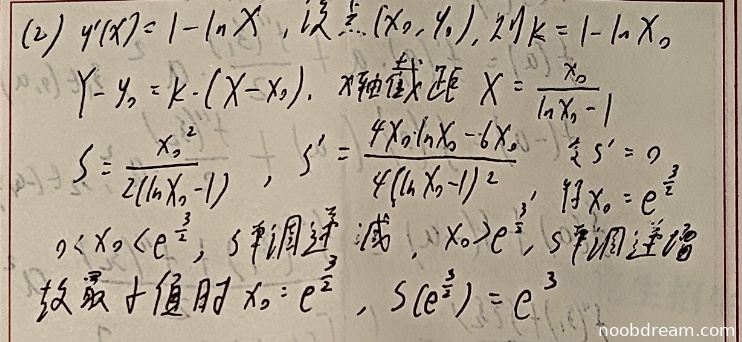 (2) y'(x) = 1-lnX, 设点(X₀, Y₀), 则k = 1-lnX₀
Y-Y₀ = k·(X-X₀). X轴截距 X = X₀/(lnX₀-1)
S = X₀²/(2(lnX₀-1)), S' = (4X₀·lnX₀-6X₀)/(4(lnX₀-1)²) 令S'=0, 得X₀ = e^(3/2)
0<X₀<e^(3/2), S单调递减, X₀>e^(3/2), S单调递增
故最小值时X₀=e^(3/2), S(e^(3/2)) = e³
noobdream.com